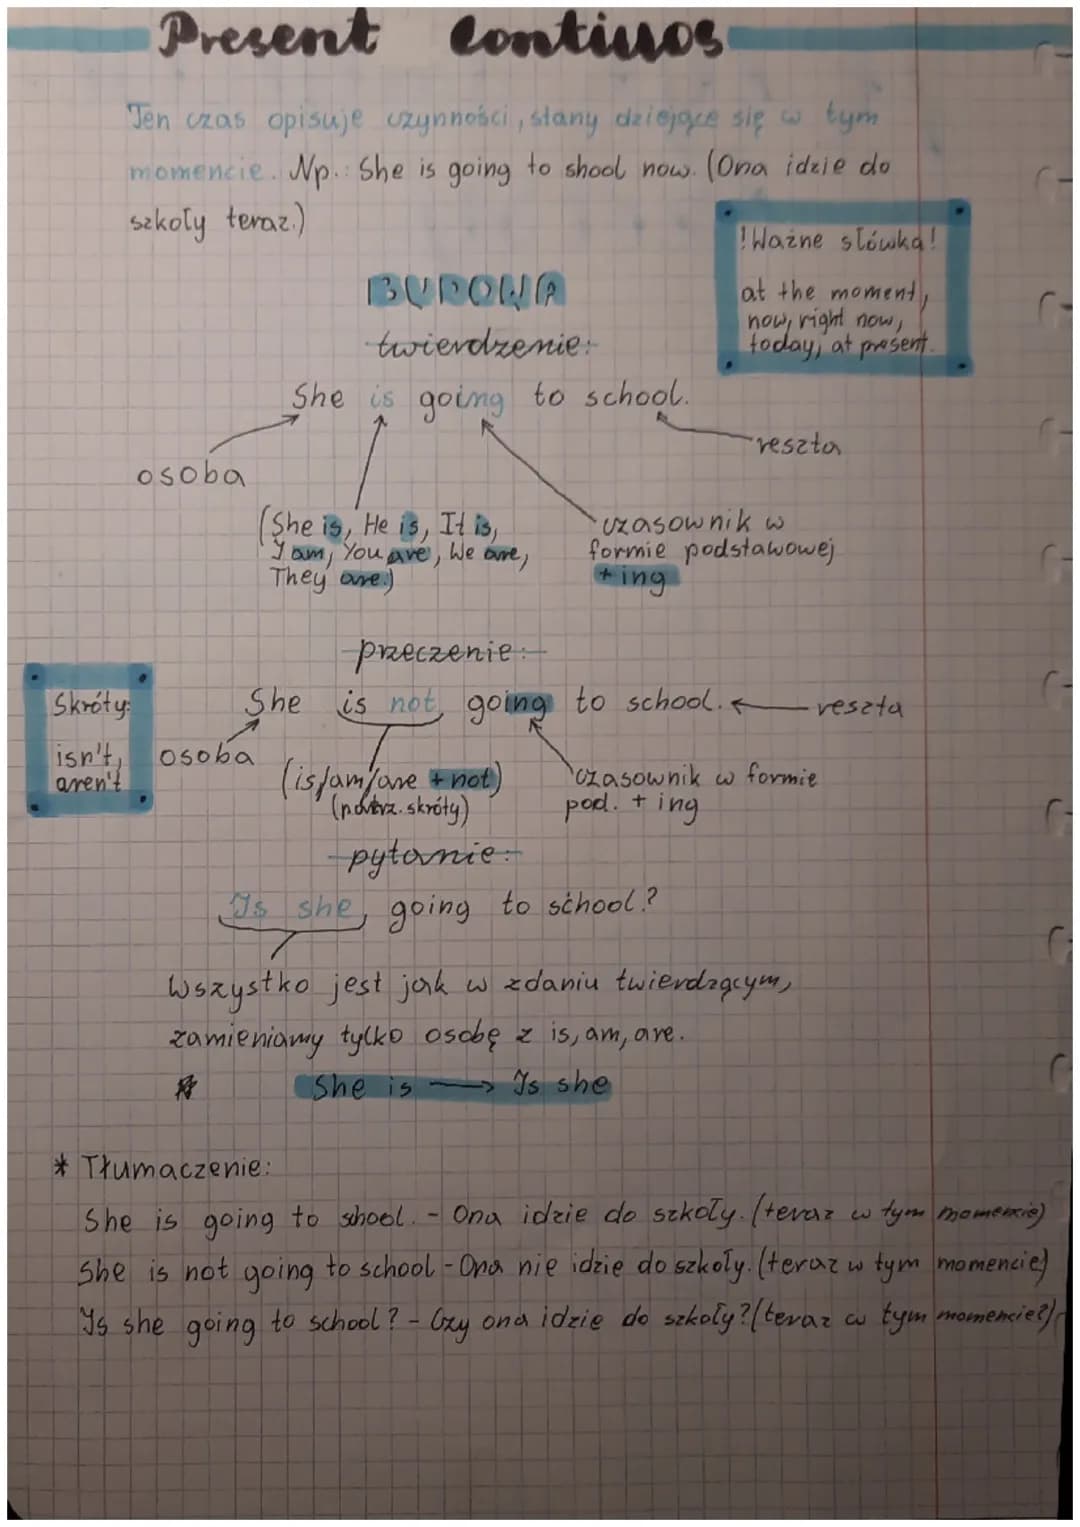 Present Continuos
Ten czas opisuje czynności, stany dziejące się w tym
momencie. Np.: She is going to shool now. (Ona idzie do
szkoły teraz.)
! Ważne słówka!
at the moment,
now, right now,
today, at present.
BUDOWA
twierdzenie:
She is going to school.
reszta
osoba
(She is, He is, It is,
I am, You are, We are,
They are.)
czasownik w
formie podstawowej
+ing
przeczenie:
Skróty:
isn't,
aren't
She is not going to school. reszta
osoba
(is/am/are + not)
(patrz. skróty)
czasownik w formie
pod. + ing
pytanie:
Is she going to school?
Wszystko jest jak w zdaniu twierdzącym,
zamieniamy tylko osobę z is, am, are.
She is → Is she
* Tłumaczenie:
She is going to shool. - Ona idzie do szkoły. (teraz w tym momencie)
She is not going to school - Ona nie idzie do szkoły. (teraz w tym momencie)
Is she going to school? - Czy ona idzie do szkoły? (teraz w tym momencie?)